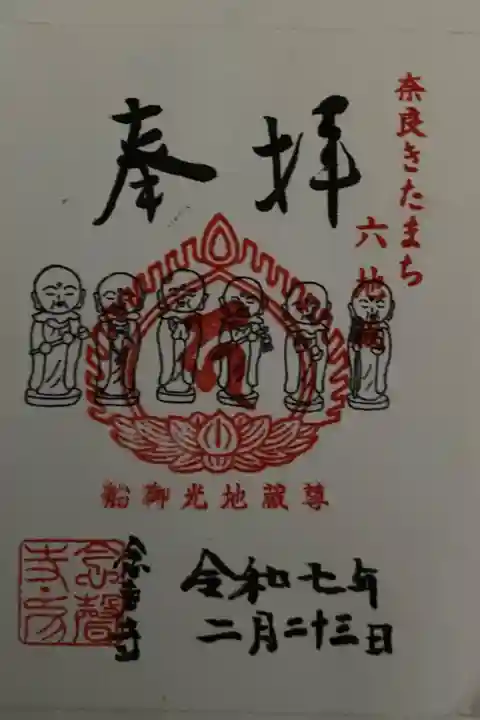 奈良きたまち
六地蔵
奉拝
船御光地蔵尊
令和七年
二月二十三日
念聲寺印